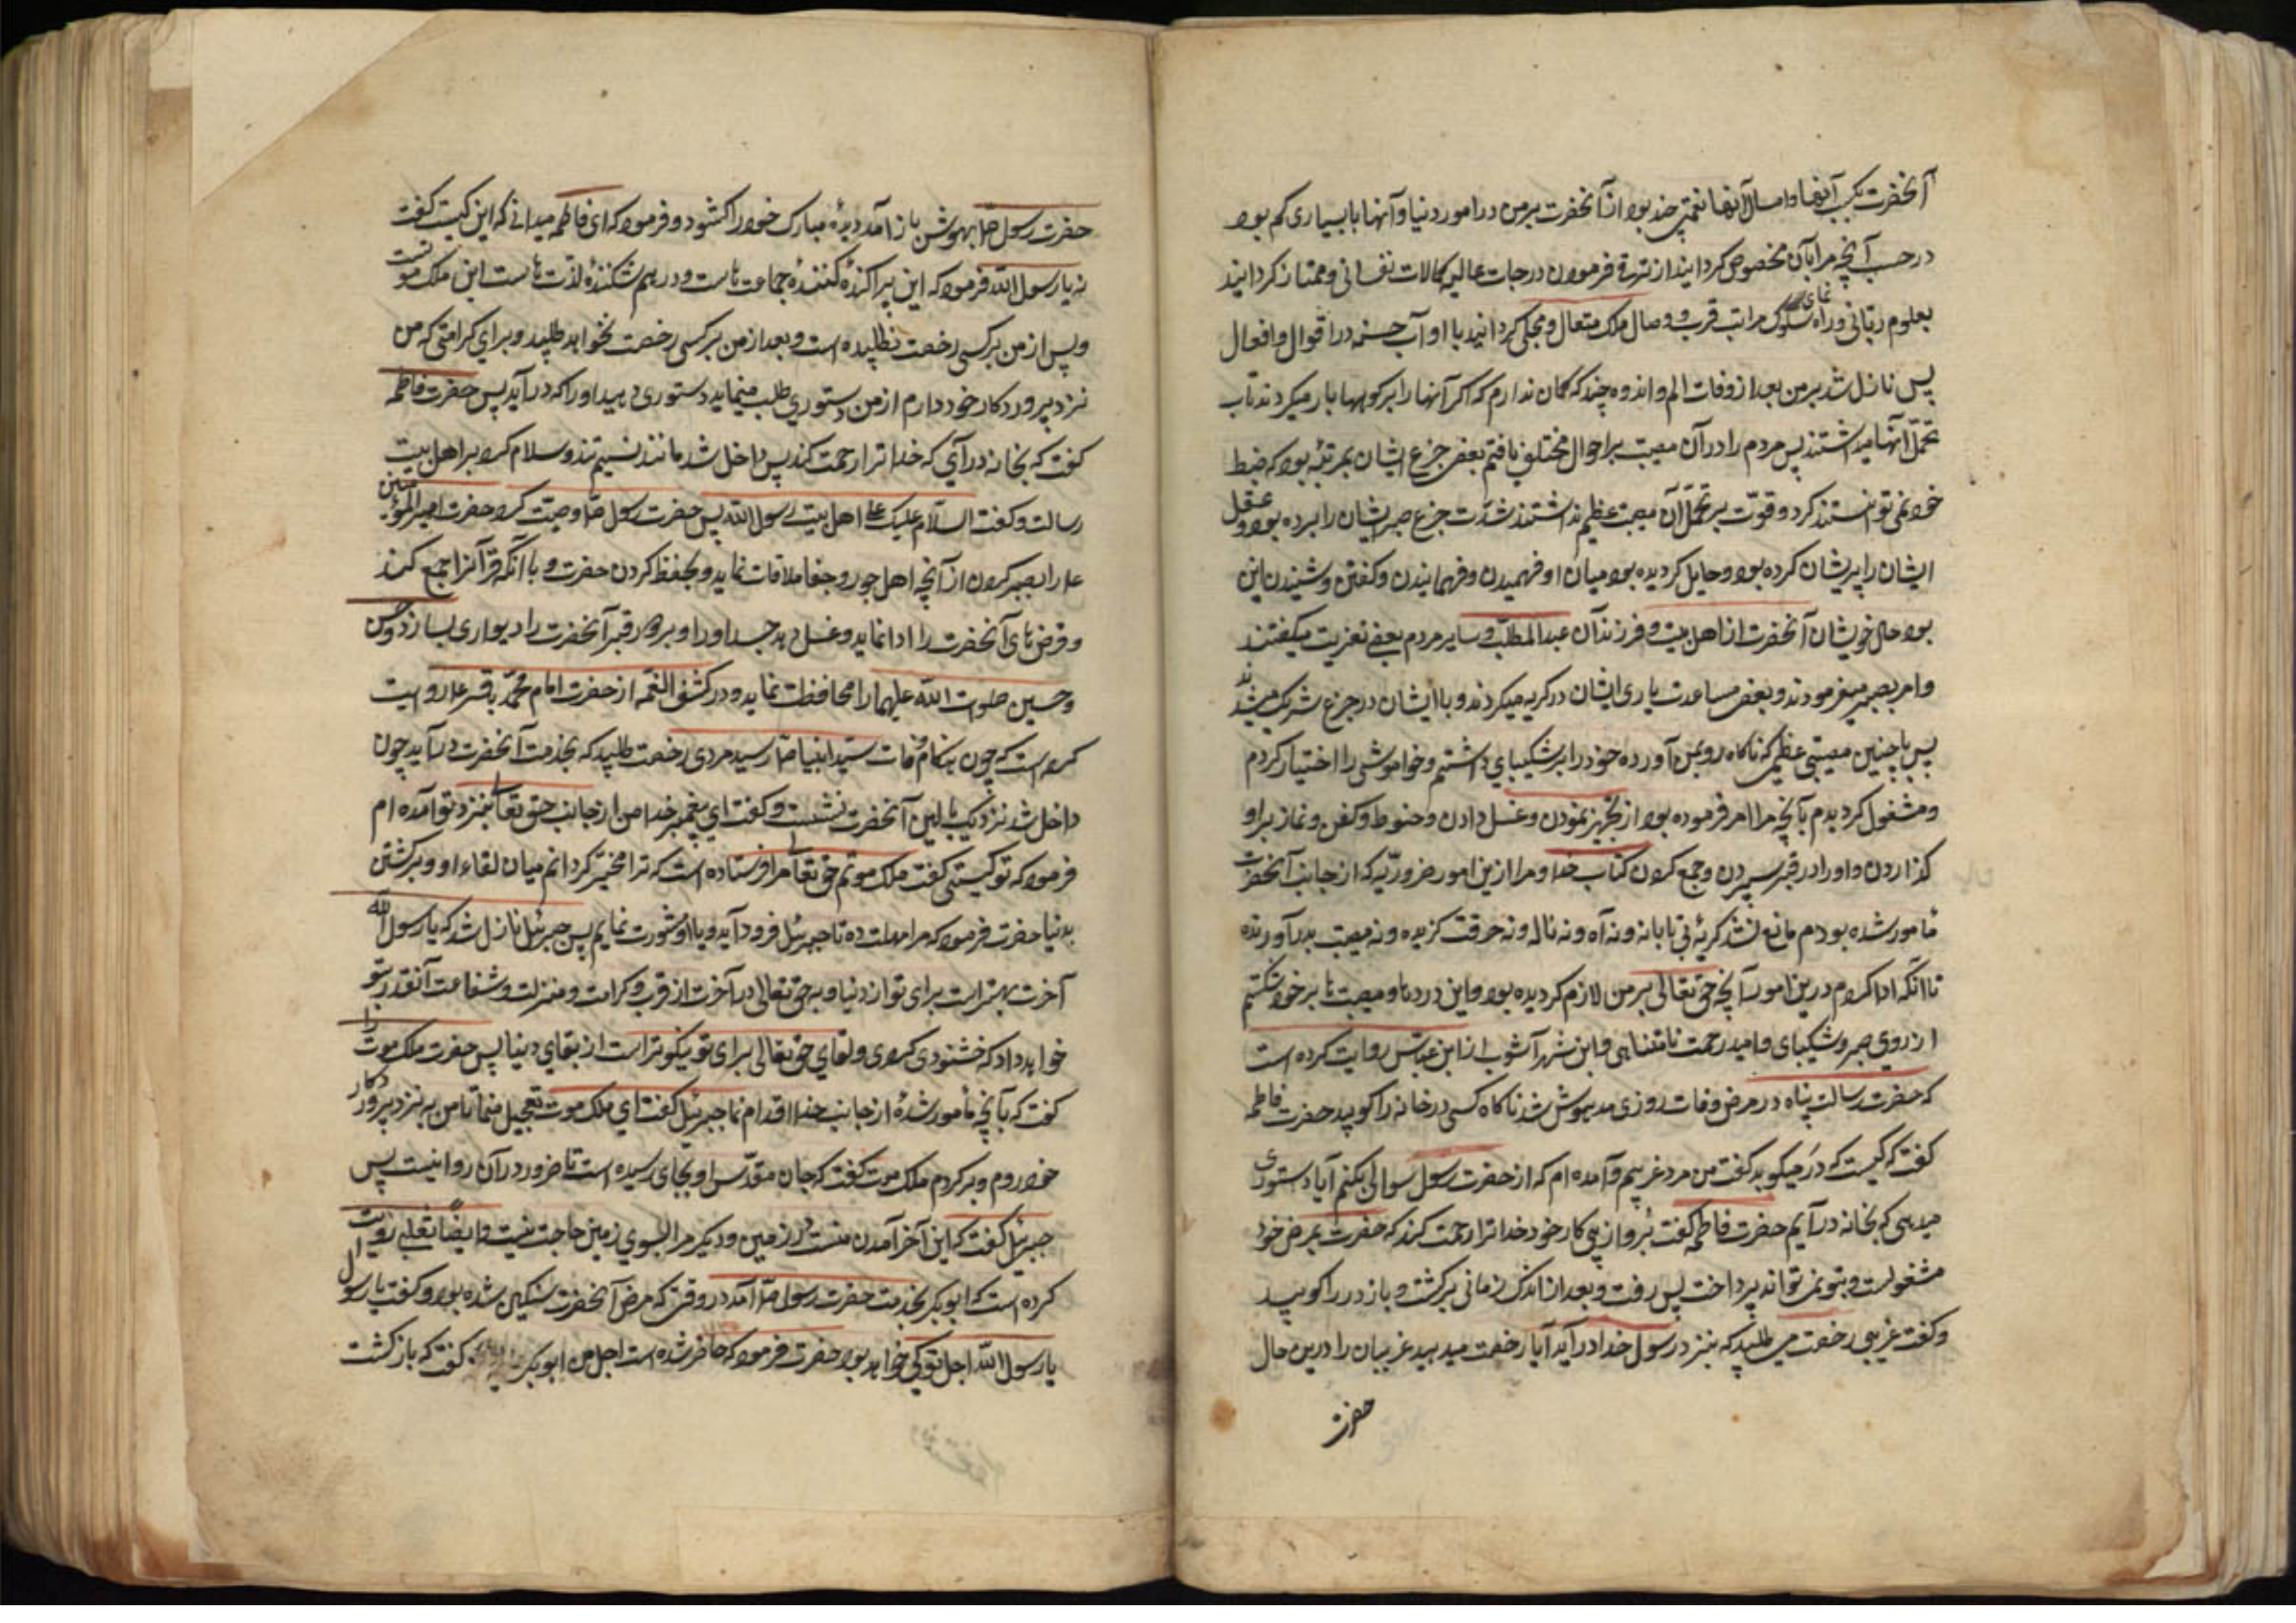 آنحضرت بکسب آنها و امسال آنها نعمتی چند بود از آنحضرت بر من در امور دنیا و آنها با بسیاری کم بود
در جنب آنچه مرا بآن مخصوص کردانید از ترقی فرمودن درجات عالیه کمالات نفسانی و ممتاز کردانید
بعلوم ربانی و راه نمای سلوک مراتب قرب و وصال ملک متعال و محلی کردانید با اوآب حسنه در اقوال و افعال
پس نازل شد بر من بعد از وفات الم و اندوه چند که کمان ندارم که اکر آنها را بر کوهها بار میکردند تاب
تحمل آنها میداشتند پس مردم را در آن مصیبت بر احوال مختلف یافتم بعضی جزع ایشان بمرتبه بود که ضبط
خود نمی توانستند کرد و قوت بر تحمل آن مصیبت عظیم نداشتند شدت جزع صبر ایشان را برده بود و عقل
ایشان را پریشان کرده بود و حایل کردیده بود میان او فهمیدن و فهمانیدن و کفتن و شنیدن این
بود حال خویشان آنحضرت از اهل بیت و فرزندان عبدالمطلب و سایر مردم بعضی تعزیت میکفتند
و امر بصبر میفرمودند و بعضی مساعدت یاری ایشان در کریه میکردند و با ایشان در جزع شریک میشدند
پس با چنین مصیبتی عظیمی که ناکاه روبمن آورده خود را بر شکیبای داشتم و خواموشی را اختیار کردم
و مشغول کردیدم بآنچه مرا امر فرموده بود از تجهیز نمودن و غسل دادن و حنوط و کفن و نماز براو
کذاردن و او را در قبر سپردن و جمع کردن کتاب خدا و مرا ازین امور ضروریه که از جانب آنحضرت
مأمور شده بودم مانع نشد کریهٔ بی تابانه و نه آه و نه ناله و نه حرقت کزیده و نه مصیبت بدرآورنده
تا آنکه ادا کردم درین امور آنچه حق تعالی بر من لازم کردیده بود و این دردها و مصیبت ها بر خود شکستم
از روی صبر و شکیبای و امید رحمت نامتناهی و ابن شهر آشوب از ابن عباس روایت کرده است
که حضرت رسالت پناه در مرض وفات روزی مدهوش شد ناکاه کسی در خانه را کوبید حضرت فاطمه
کفت که کیست که در میکوبد کفت من مرد غریبم و آمده ام که از حضرت رسول سوالی بکنم آیا دستوری
میدهی که بخانه درآیم حضرت فاطمه کفت برو از پی کار خود خدا ترا رحمت کند که حضرت بمرض خود
مشغولست و بتو نمی تواند پرداخت پس رفت و بعد از اندک زمانی برکشت و باز در را کوبید
و کفت غریبی رخصت می طلبد که بنزد رسول خدا درآید آیا رخصت میدهید غریبان را درین حال
حضرت
حضرت رسول ص بهوش باز آمد دیدهٔ مبارک خود را کشود و فرمود که ای فاطمه میدانی که این کیست کفت
نه یا رسول الله فرمود که این پراکنده کنندهٔ جماعت هاست و درهم شکنندهٔ لذت هاست این ملک موتست
و پس از من بر کسی رخصت نطلبیده است و بعد از من بر کسی رخصت نخواهد طلبید و برای کرامتی که من
نزد پروردکار خود دارم از من دستوری طلب مینماید دستوری دهید او را که درآید پس حضرت فاطمه
کفت که بخانه درآی که خدا ترا رحمت کند پس داخل شد مانند نسیم تند و سلام کرد بر اهل بیت
رسالت و کفت السلام علیک علی اهل بیت رسول الله پس حضرت رسول ص وصیت کرد حضرت امیر المؤمنین
ع را بصبر کردن از آنچه اهل جور و جفا ملاقات نماید و بحفظ کردن حضرت و با آنکه قرآنرا جمع کند
و قرض های آنحضرت را ادا نماید و غسل دهد جسد او را و بر دور قبر آنحضرت را دیواری بسازد و حسن
و حسین صلوت الله علیهما را محافظت نماید و در کشف الغمه از حضرت امام محمد باقر ع روایت
کرده است که چون هنکام وفات سید انبیا ص رسید مردی رخصت طلبید که بخدمت آنحضرت درآید چون
داخل شد نزدیک بالین آنحضرت نشست و کفت ای پیغمبر خدا من از جانب حق تعالی بنزد تو آمده ام
فرمود که تو کیستی کفت ملک موتم حق تعالی مرا فرستاده است که ترا مخیر کردانم میان لقاء او و برکشتن
بدنیا حضرت فرمود که مرا مهلت ده تا جبرئیل فرود آید و با او مشورت نمایم پس جبرئیل نازل شد که یا رسول الله
آخرت بهتر است برای تو از دنیا و به حق تعالی در آخرت از قرب و کرامت و منزلت و شفاعت آنقدر بتو
خواهد داد که خشنودی کردی و لقای حق تعالی برای تو نیکوتر است از بقای دنیا پس حضرت ملک موت را
کفت که بآنچه مأمور شدهٔ از جانب خدا اقدام نما جبرئیل کفت ای ملک موت تعجیل منما تا من به نزد پروردکار
خود روم و برکردم ملک موت کفت که جان مقدس او بجای رسیده است تاخیر در آن روا نیست پس
جبرئیل کفت که این آخر آمدن منست در زمین و دیکر مرا بسوی زمین حاجت نیست و ایضاً ثعلبی روایت
کرده است که ابو بکر بخدمت حضرت رسول ص آمد در وقتی که مرض آنحضرت سنکین شده بود و کفت یا رسول
یا رسول الله اجل تو کی خواهد بود حضرت فرمود که حاضر شده است اجل من ابو بکر کفت که بازکشت